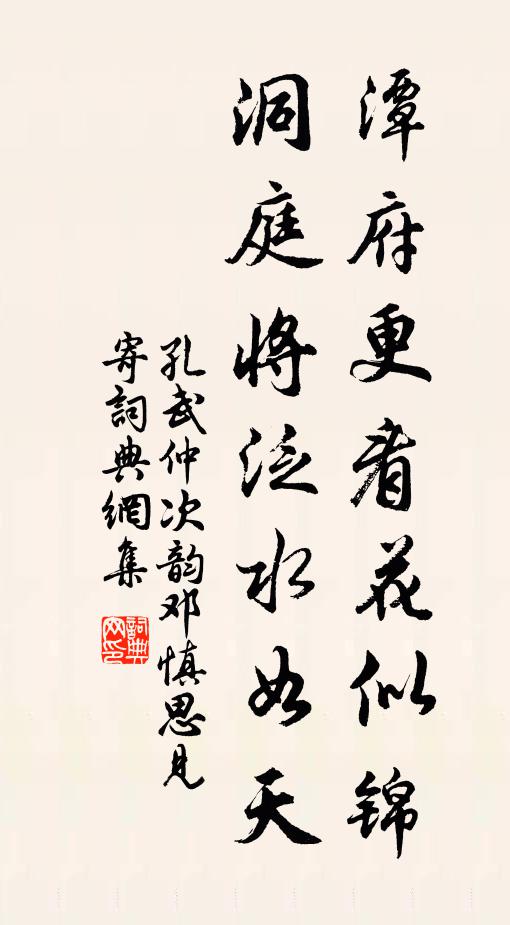 潭府更看花似錦
洞庭將泛水如天
孔武仲次韵邓慎思見
寄詞典網集
詞典
网印